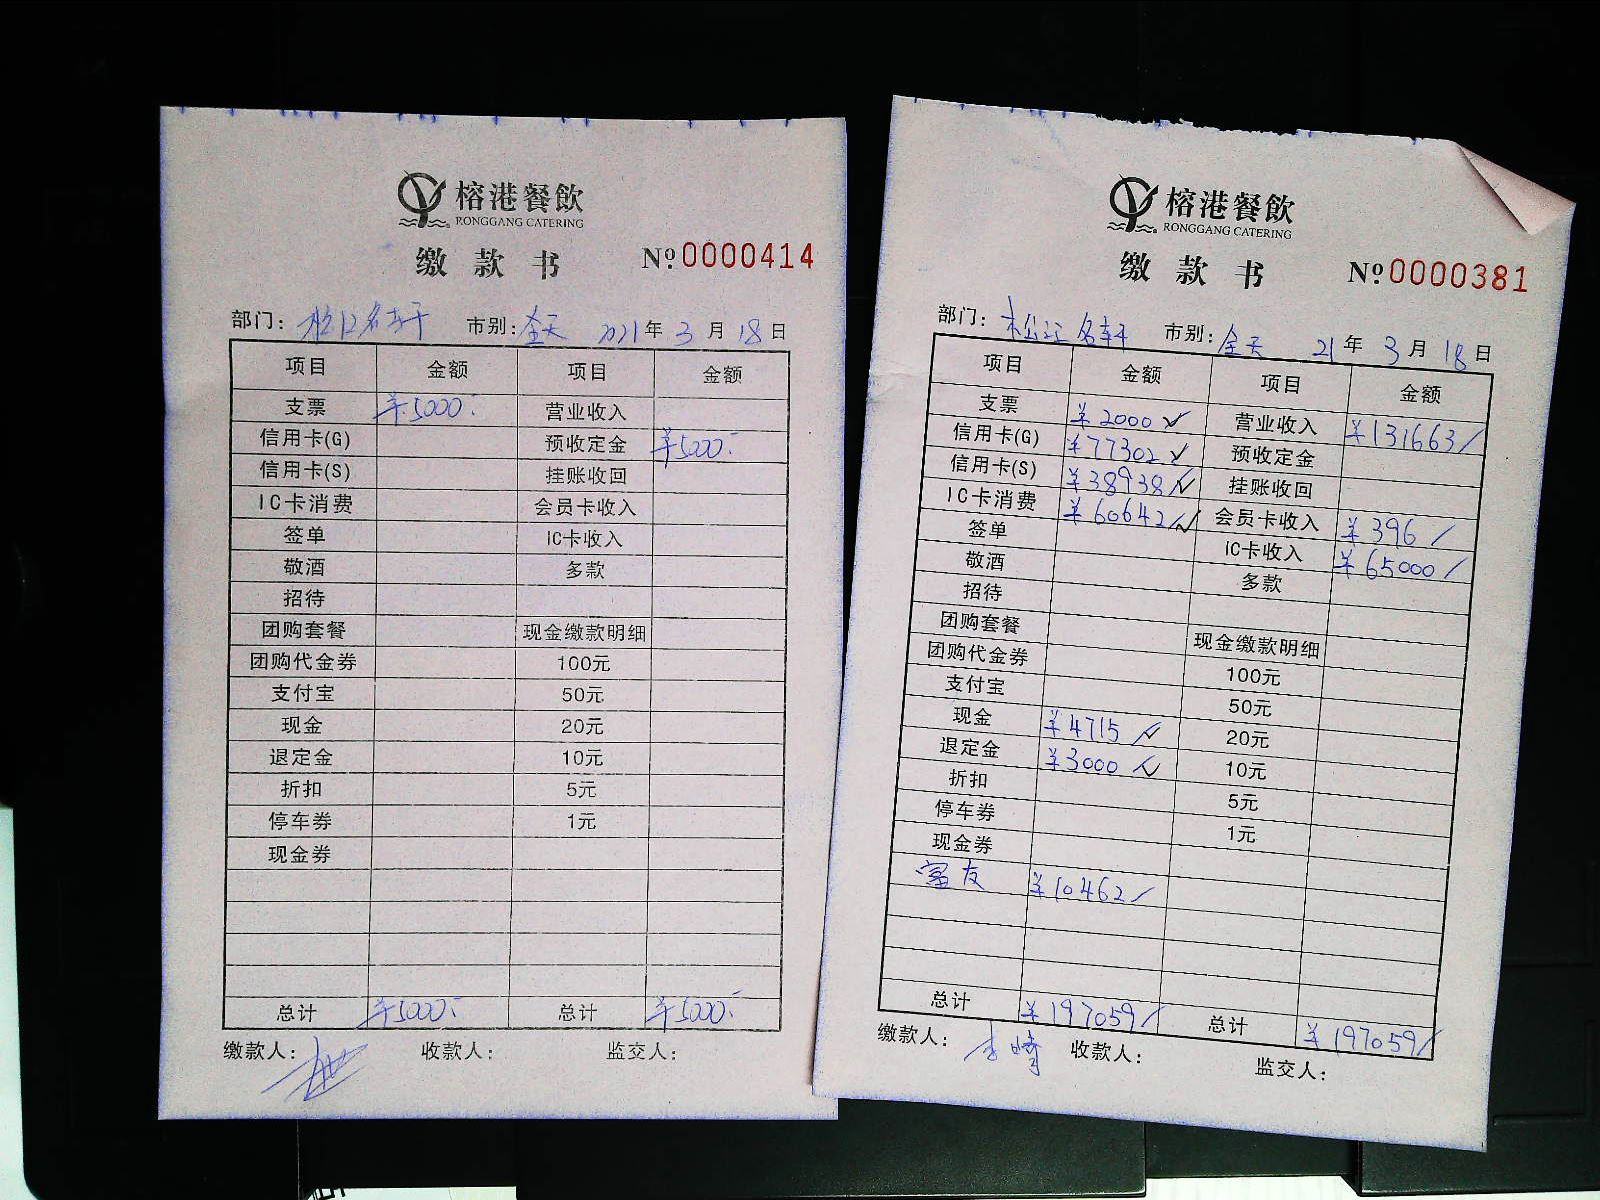 榕港餐飲
RONGGANG CATERING
缴款书 Nº 0000414
部门: 名轩 市别: 全天 2021年3月18日
项目 金额 项目 金额
支票 ¥5000.- 营业收入
信用卡(G) 预收定金 ¥5000.-
信用卡(S) 挂账收回
IC卡消费 会员卡收入
签单 IC卡收入
敬酒 多款
招待
团购套餐 现金缴款明细
团购代金券 100元
支付宝 50元
现金 20元
退定金 10元
折扣 5元
停车券 1元
现金券
总计 ¥5000.- 总计 ¥5000.-
缴款人: 收款人: 监交人:
榕港餐飲
RONGGANG CATERING
缴款书 Nº 0000381
部门: 松江名轩 市别: 全天 21年3月18日
项目 金额 项目 金额
支票 ¥2000 ✓ 营业收入 ¥131663/
信用卡(G) ¥77302 ✓ 预收定金
信用卡(S) ¥38938/✓ 挂账收回
IC卡消费 ¥60642/✓ 会员卡收入 ¥396/
签单 IC卡收入 ¥65000/
敬酒 多款
招待
团购套餐 现金缴款明细
团购代金券 100元
支付宝 50元
现金 ¥4715/✓ 20元
退定金 ¥3000/✓ 10元
折扣 5元
停车券 1元
现金券
富友 ¥10462/
总计 ¥197059/ 总计 ¥197059/
缴款人: 收款人: 监交人: